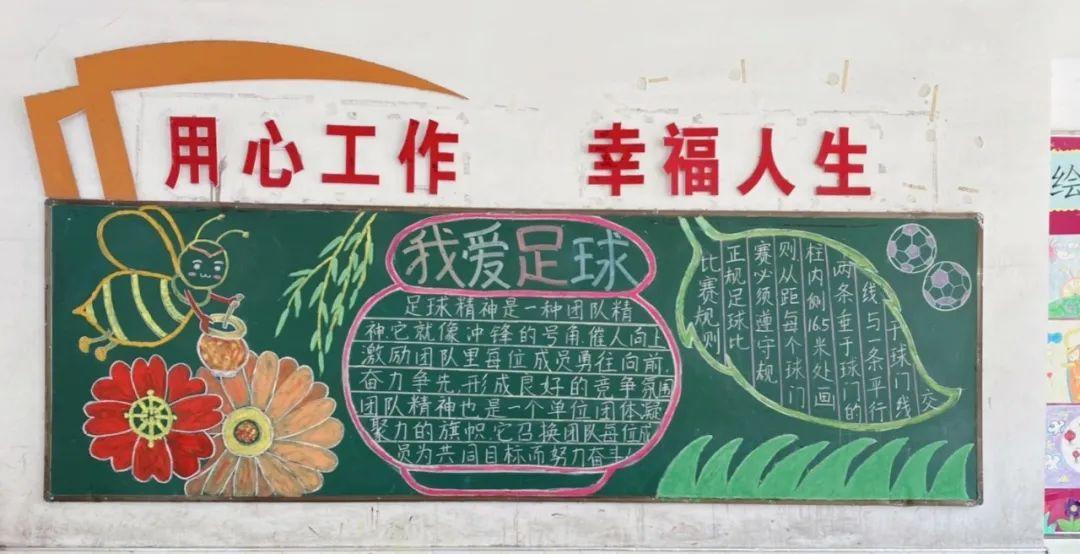 用心工作 幸福人生
我爱足球
足球精神是一种团队精
神它就像冲锋的号角,催人向上
激励团队里每位成员勇往向前,
奋力争先,形成良好的竞争氛围
团队精神也是一个单位,团体凝
聚力的旗帜,它召换团队每位成
员为共同目标而努力奋斗
比赛规则
正规足球比
赛必须遵守规
则从距每个球门
柱内侧165米处画
两条垂于球门的
线与一条平行
于球门线
交
绘